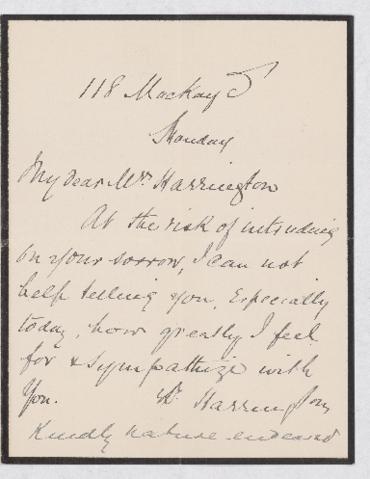 118 Mackay St
Monday
My dear Mrs Harrington
At the risk of intruding
on your sorrow, I can not
help telling you, Especially
today, how greatly I feel
for & sympathize with
You. Dr Harrington,
Kindly nature endeared